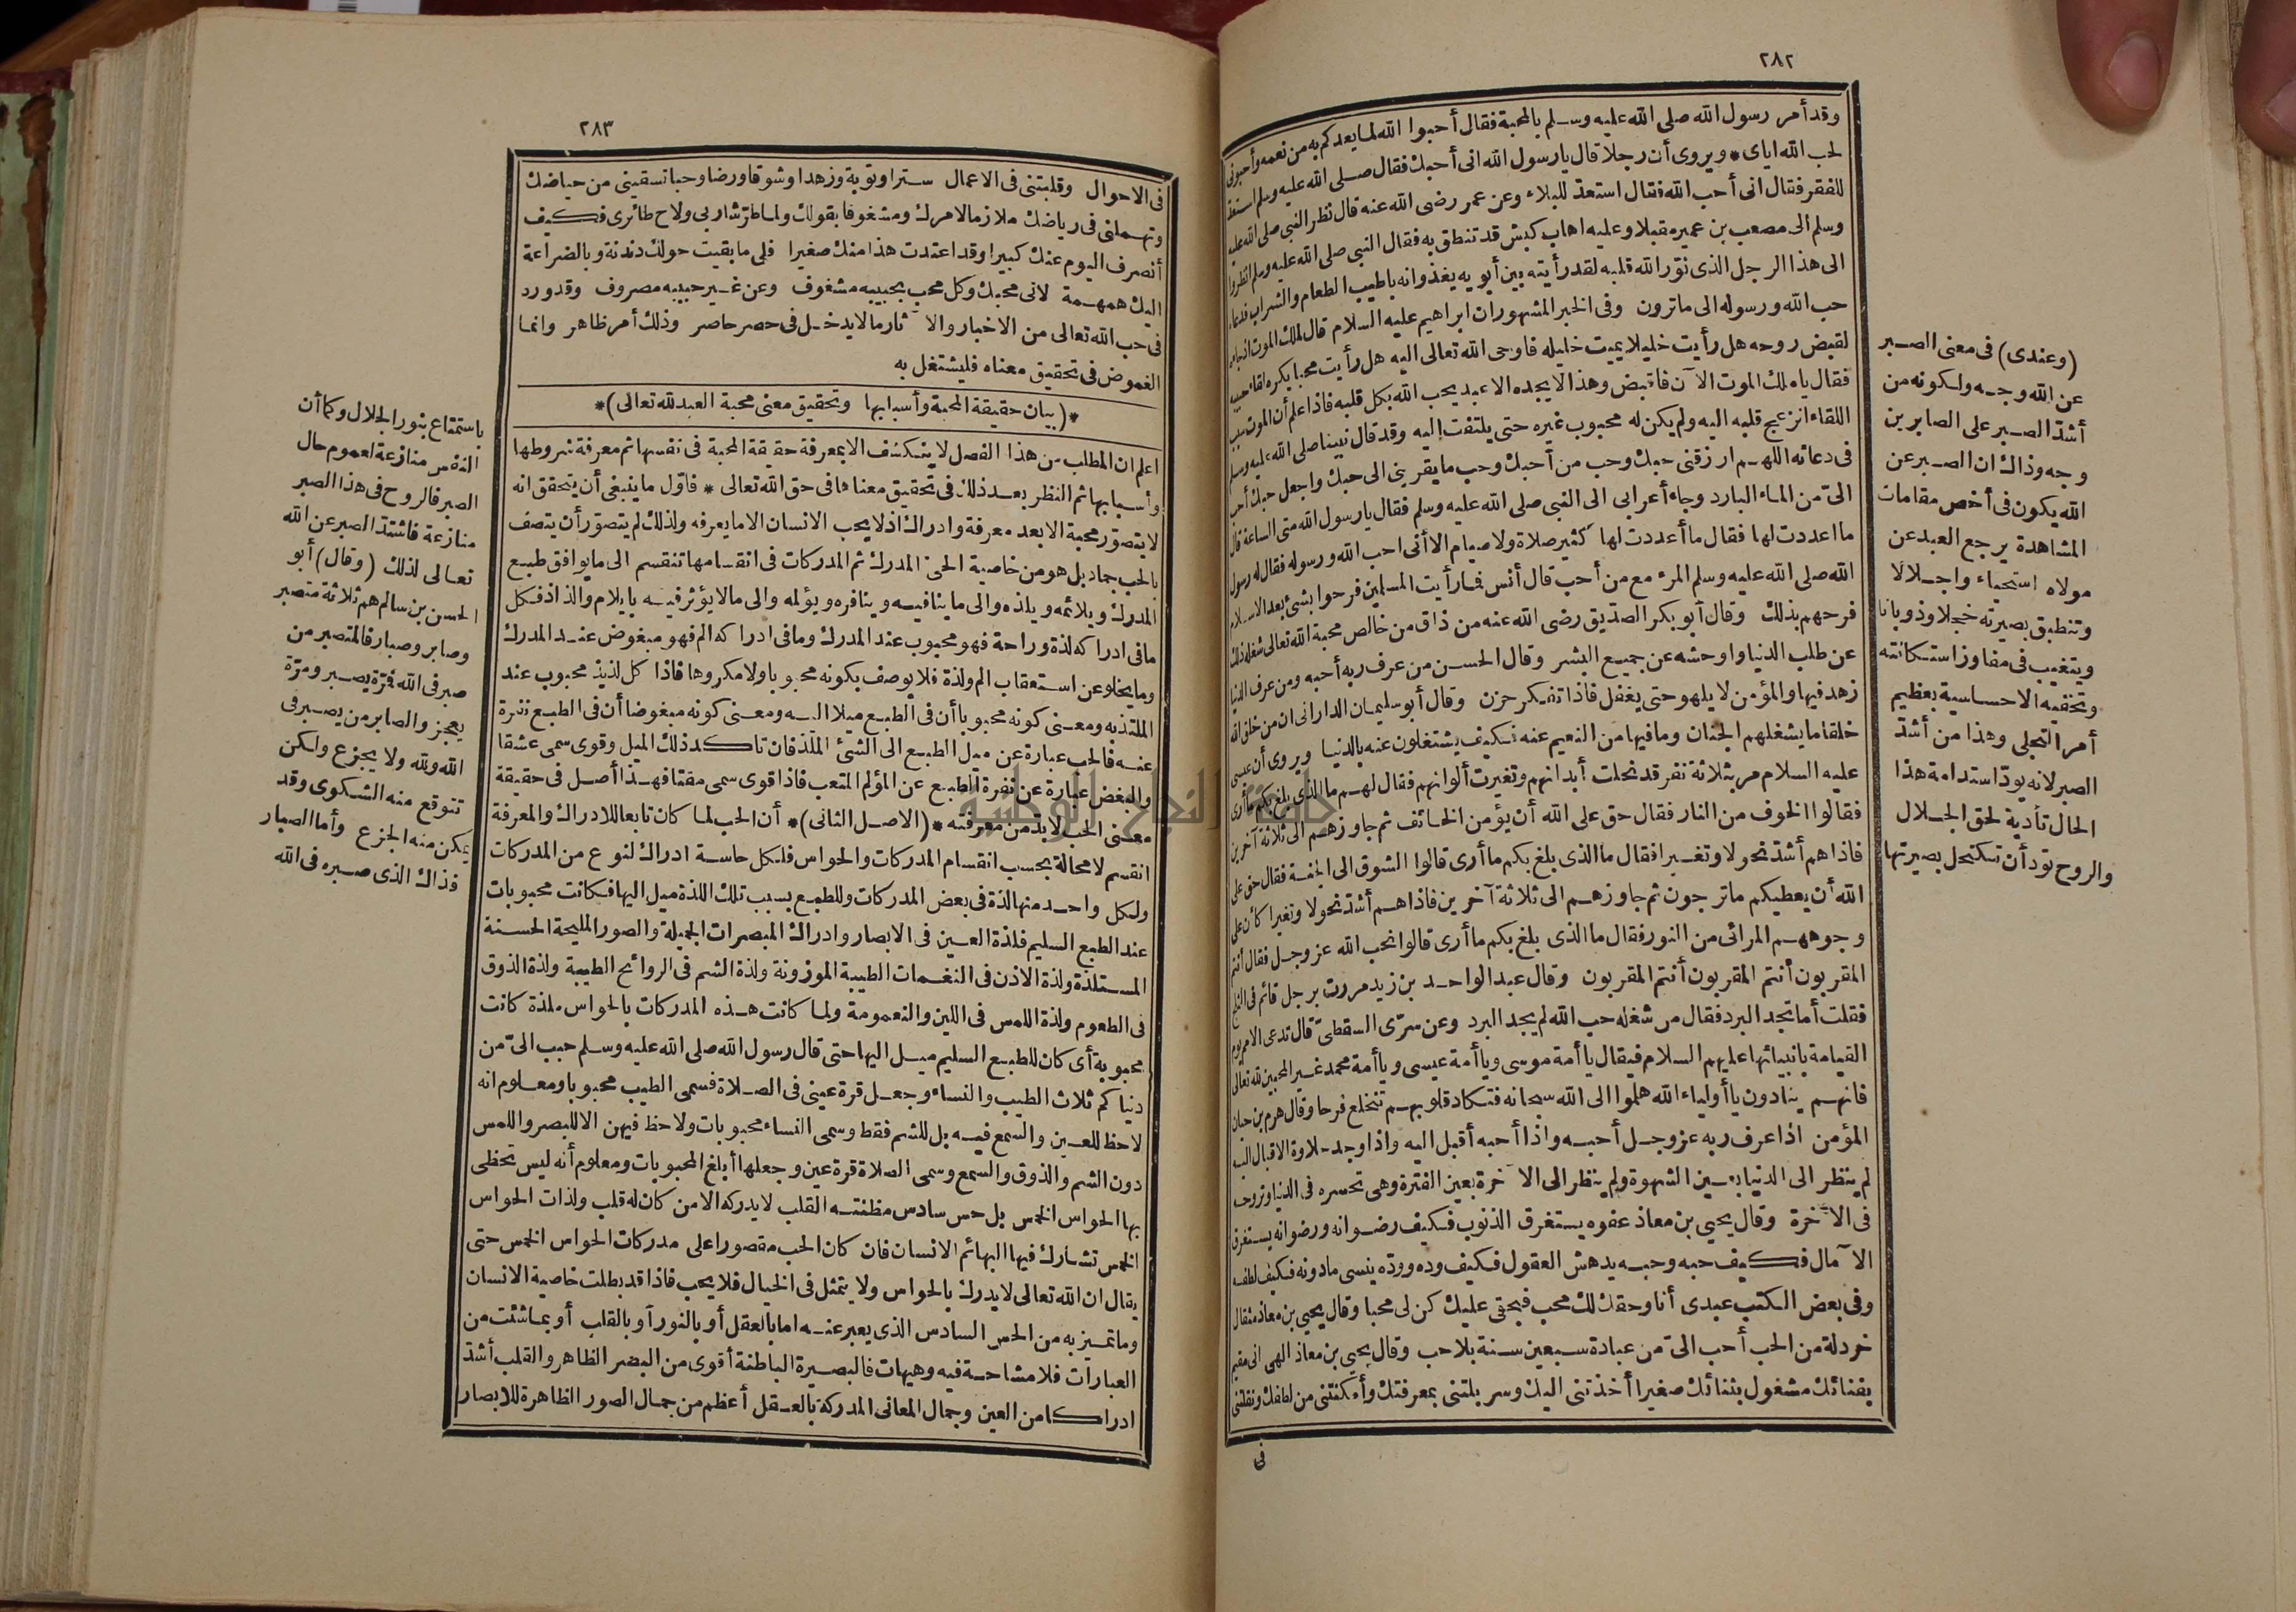 ٢٨٢
وقد أمر رسول الله صلى الله عليه وسلم بالمحبة فقال أحبوا الله لما يغدوكم به من نعمه وأحبونى
لحب الله اياى * ويروى أن رجلا قال يا رسول الله انى أحبك فقال صلى الله عليه وسلم استعد
للفقر فقال انى أحب الله فقال استعد للبلاء وعن عمر رضى الله عنه قال نظر النبى صلى الله عليه
وسلم الى مصعب بن عمير مقبلا وعليه اهاب كبش قد تنطق به فقال النبى صلى الله عليه وسلم انظروا
الى هذا الرجل الذى نوّر الله قلبه لقد رأيته بين أبويه يغذوانه باطيب الطعام والشراب فدعاه
حب الله ورسوله الى ما ترون وفى الخبر المشهور ان ابراهيم عليه السلام قال لملك الموت اذ جاءه
لقبض روحه هل رأيت خليلا يميت خليله فاوحى الله تعالى اليه هل رأيت محبا يكره لقاء حبيبه
فقال يا ملك الموت الآن فاقبض وهذا لا يجده الا عبد يحب الله بكل قلبه فاذا علم أن الموت سبب
اللقاء انزعج قلبه اليه ولم يكن له محبوب غيره حتى يلتفت اليه وقد قال نبينا صلى الله عليه وسلم
فى دعائه اللهم ارزقنى حبك وحب من أحبك وحب ما يقربنى الى حبك واجعل حبك أحب
الىّ من الماء البارد وجاء أعرابى الى النبى صلى الله عليه وسلم فقال يا رسول الله متى الساعة قال
ما اعددت لها فقال ما أعددت لها كثير صلاة ولا صيام الا أنى احب الله ورسوله فقال له رسول
الله صلى الله عليه وسلم المرء مع من أحب قال أنس فما رأيت المسلمين فرحوا بشئ بعد الاسلام
فرحهم بذلك وقال أبو بكر الصدّيق رضى الله عنه من ذاق من خالص محبة الله تعالى شغله ذلك
عن طلب الدنيا واوحشه عن جميع البشر وقال الحسن من عرف ربه أحبه ومن عرف الدنيا
زهد فيها والمؤمن لا يلهو حتى يغفل فاذا تفكر حزن وقال أبو سليمان الدارانى ان من خلق الله
خلقا ما يشغلهم الجنان وما فيها من النعيم عنه فكيف يشتغلون عنه بالدنيا ويروى أن عيسى
عليه السلام مر بثلاثة نفر قد نحلت أبدانهم وتغيرت ألوانهم فقال لهم ما الذى بلغ بكم ما أرى
فقالوا الخوف من النار فقال حق على الله أن يؤمن الخائف ثم جاوزهم الى ثلاثة آخرين
فاذا هم أشدّ نحولا وتغيرا فقال ما الذى بلغ بكم ما أرى قالوا الشوق الى الجنة فقال حق على
الله أن يعطيكم ما ترجون ثم جاوزهم الى ثلاثة آخرين فاذا هم أشدّ نحولا وتغيرا كأن على
وجوههم المرائى من النور فقال ما الذى بلغ بكم ما أرى قالوا نحب الله عز وجل فقال أنتم
المقربون أنتم المقربون أنتم المقربون وقال عبد الواحد بن زيد مررت برجل قائم فى الثلج
فقلت أما تجد البرد فقال من شغله حب الله لم يجد البرد وعن سرّى السقطىّ قال تدعى الامم يوم
القيامة بانبيائها عليهم السلام فيقال يا أمة موسى ويا أمة عيسى ويا أمة محمد غير المحبين لله تعالى
فانهم ينادون يا أولياء الله هلموا الى الله سبحانه فتكاد قلوبهم تنخلع فرحا وقال هرم بن حبان
المؤمن اذا عرف ربه عز وجل أحبه واذا أحبه أقبل اليه واذا وجد حلاوة الاقبال اليه
لم ينظر الى الدنيا بعين الشهوة ولم ينظر الى الآخرة بعين الفترة وهى تحسره فى الدنيا وتروحه
فى الآخرة وقال يحيى بن معاذ عفوه يستغرق الذنوب فكيف رضوانه ورضوانه يستغرق
الآمال فكيف حبه وحبه يدهش العقول فكيف وده ووده ينسى ما دونه فكيف لطفه
وفى بعض الكتب عبدى أنا وحقك لك محب فبحقى عليك كن لى محبا وقال يحيى بن معاذ مثقال
خردلة من الحب أحب الىّ من عبادة سبعين سنة بلا حب وقال يحيى بن معاذ الهى انى مقيم
بفنائك مشغول بثنائك صغيرا أخذتنى اليك وسربلتنى بمعرفتك وأمكنتنى من لطفك ونقلتنى
فى
(وعندى) فى معنى الصبر
عن الله وجه ولكونه من
أشدّ الصبر على الصابرين
وجه وذاك ان الصبر عن
الله يكون فى أخص مقامات
المشاهدة يرجع العبد عن
مولاه استحياء واجلالا
وتنطبق بصيرته خجلا وذوبانا
ويتغيب فى مفاوز استكانته
وتخفيه الاحساسية بعظيم
أمر التجلى وهذا من أشدّ
الصبر لانه يودّ استدامة هذا
الحال تأدية لحق الجلال
والروح تودّ أن تكتحل بصيرتها
٢٨٣
فى الاحوال وقلبتنى فى الاعمال سترا وتوبة وزهدا وشوقا ورضا وحبا تسقينى من حياضك
وتهملنى فى رياضك ملازما لامرك ومشغوفا بقولك ولما طرّ شاربى ولاح طائرى فكيف
أنصرف اليوم عنك كبيرا وقد اعتدت هذا منك صغيرا فلى ما بقيت حولك دندنة وبالضراعة
اليك همهمة لانى محبك وكل محب بحبيبه مشغوف وعن غير حبيبه مصروف وقد ورد
فى حب الله تعالى من الاخبار والآثار ما لا يدخل فى حصر حاصر وذلك أمر ظاهر وانما
الغموض فى تحقيق معناه فليشتغل به
*(بيان حقيقة المحبة وأسبابها وتحقيق معنى محبة العبد لله تعالى)*
اعلم ان المطلب من هذا الفصل لا ينكشف الا بمعرفة حقيقة المحبة فى نفسها ثم معرفة شروطها
وأسبابها ثم النظر بعد ذلك فى تحقيق معناها فى حق الله تعالى * فاوّل ما ينبغى أن يتحقق انه
لا يتصوّر محبة الا بعد معرفة وادراك اذ لا يحب الانسان الا ما يعرفه ولذلك لم يتصوّر أن يتصف
بالحب جماد بل هو من خاصية الحىّ المدرك ثم المدركات فى انقسامها تنقسم الى ما يوافق طبع
المدرك ويلائمه ويلذه والى ما ينافيه وينافره ويؤلمه والى ما لا يؤثر فيه بايلام والذاذ فكل
ما فى ادراكه لذة وراحة فهو محبوب عند المدرك وما فى ادراكه الم فهو مبغوض عند المدرك
وما يخلو عن استعقاب الم ولذة فلا يوصف بكونه محبوبا ولا مكروها فاذا كل لذيذ محبوب عند
الملتذ به ومعنى كونه محبوبا أن فى الطبع ميلا اليه ومعنى كونه مبغوضا أن فى الطبع نفرة
عنه فالحب عبارة عن ميل الطبع الى الشئ الملذ فان تأكد ذلك الميل وقوى سمى عشقا
والبغض عبارة عن نفرة الطبع عن المؤلم المتعب فاذا قوى سمى مقتا فهذا أصل فى حقيقة
معنى الحب لا بدّ من معرفته *(الاصل الثانى)* أن الحب لما كان تابعا للادراك والمعرفة
انقسم لا محالة بحسب انقسام المدركات والحواس فلكل حاسة ادراك لنوع من المدركات
ولكل واحد منها لذة فى بعض المدركات وللطبع بسبب تلك اللذة ميل اليها فكانت محبوبات
عند الطبع السليم فلذة العين فى الابصار وادراك المبصرات الجميلة والصور المليحة الحسنة
المستلذة ولذة الاذن فى النغمات الطيبة الموزونة ولذة الشم فى الروائح الطيبة ولذة الذوق
فى الطعوم ولذة اللمس فى اللين والنعومة ولما كانت هذه المدركات بالحواس ملذة كانت
محبوبة أى كان للطبع السليم ميل اليها حتى قال رسول الله صلى الله عليه وسلم حبب الىّ من
دنياكم ثلاث الطيب والنساء وجعل قرة عينى فى الصلاة فسمى الطيب محبوبا ومعلوم انه
لا حظ للعين والسمع فيه بل للشم فقط وسمى النساء محبوبات ولا حظ فيهن الا للبصر واللمس
دون الشم والذوق والسمع وسمى الصلاة قرة عين وجعلها أبلغ المحبوبات ومعلوم أنه ليس تحظى
بها الحواس الخمس بل حس سادس مظنته القلب لا يدركه الا من كان له قلب ولذات الحواس
الخمس تشارك فيها البهائم الانسان فان كان الحب مقصورا على مدركات الحواس الخمس حتى
يقال ان الله تعالى لا يدرك بالحواس ولا يتمثل فى الخيال فلا يحب فاذا قد بطلت خاصية الانسان
وما تميز به من الحس السادس الذى يعبر عنه اما بالعقل أو بالنور أو بالقلب أو بما شئت من
العبارات فلا مشاحة فيه وهيهات فالبصيرة الباطنة أقوى من البصر الظاهر والقلب أشدّ
ادراكا من العين وجمال المعانى المدركة بالعقل أعظم من جمال الصور الظاهرة للابصار
باستمتاع بنور الجلال وكما أن
النفس منازعة لعموم حال
الصبر فالروح فى هذا الصبر
منازعة فاشتدّ الصبر عن الله
تعالى لذلك (وقال) أبو
الحسن بن سالم هم ثلاثة متصبر
وصابر وصبار فالمتصبر من
صبر فى الله فمرّة يصبر ومرّة
يعجز والصابر من يصبر فى
الله ولله ولا يجزع ولكن
تتوقع منه الشكوى وقد
يمكن منه الجزع وأما الصبار
فذاك الذى صبره فى الله
جامعة النجاح الوطنية